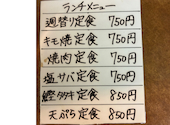 ランチメニュー
週替り定食 750円
キモ焼定食 750円
焼肉定食 750円
塩サバ定食 750円
鰹タタキ定食 850円
天ぷら定食 850円